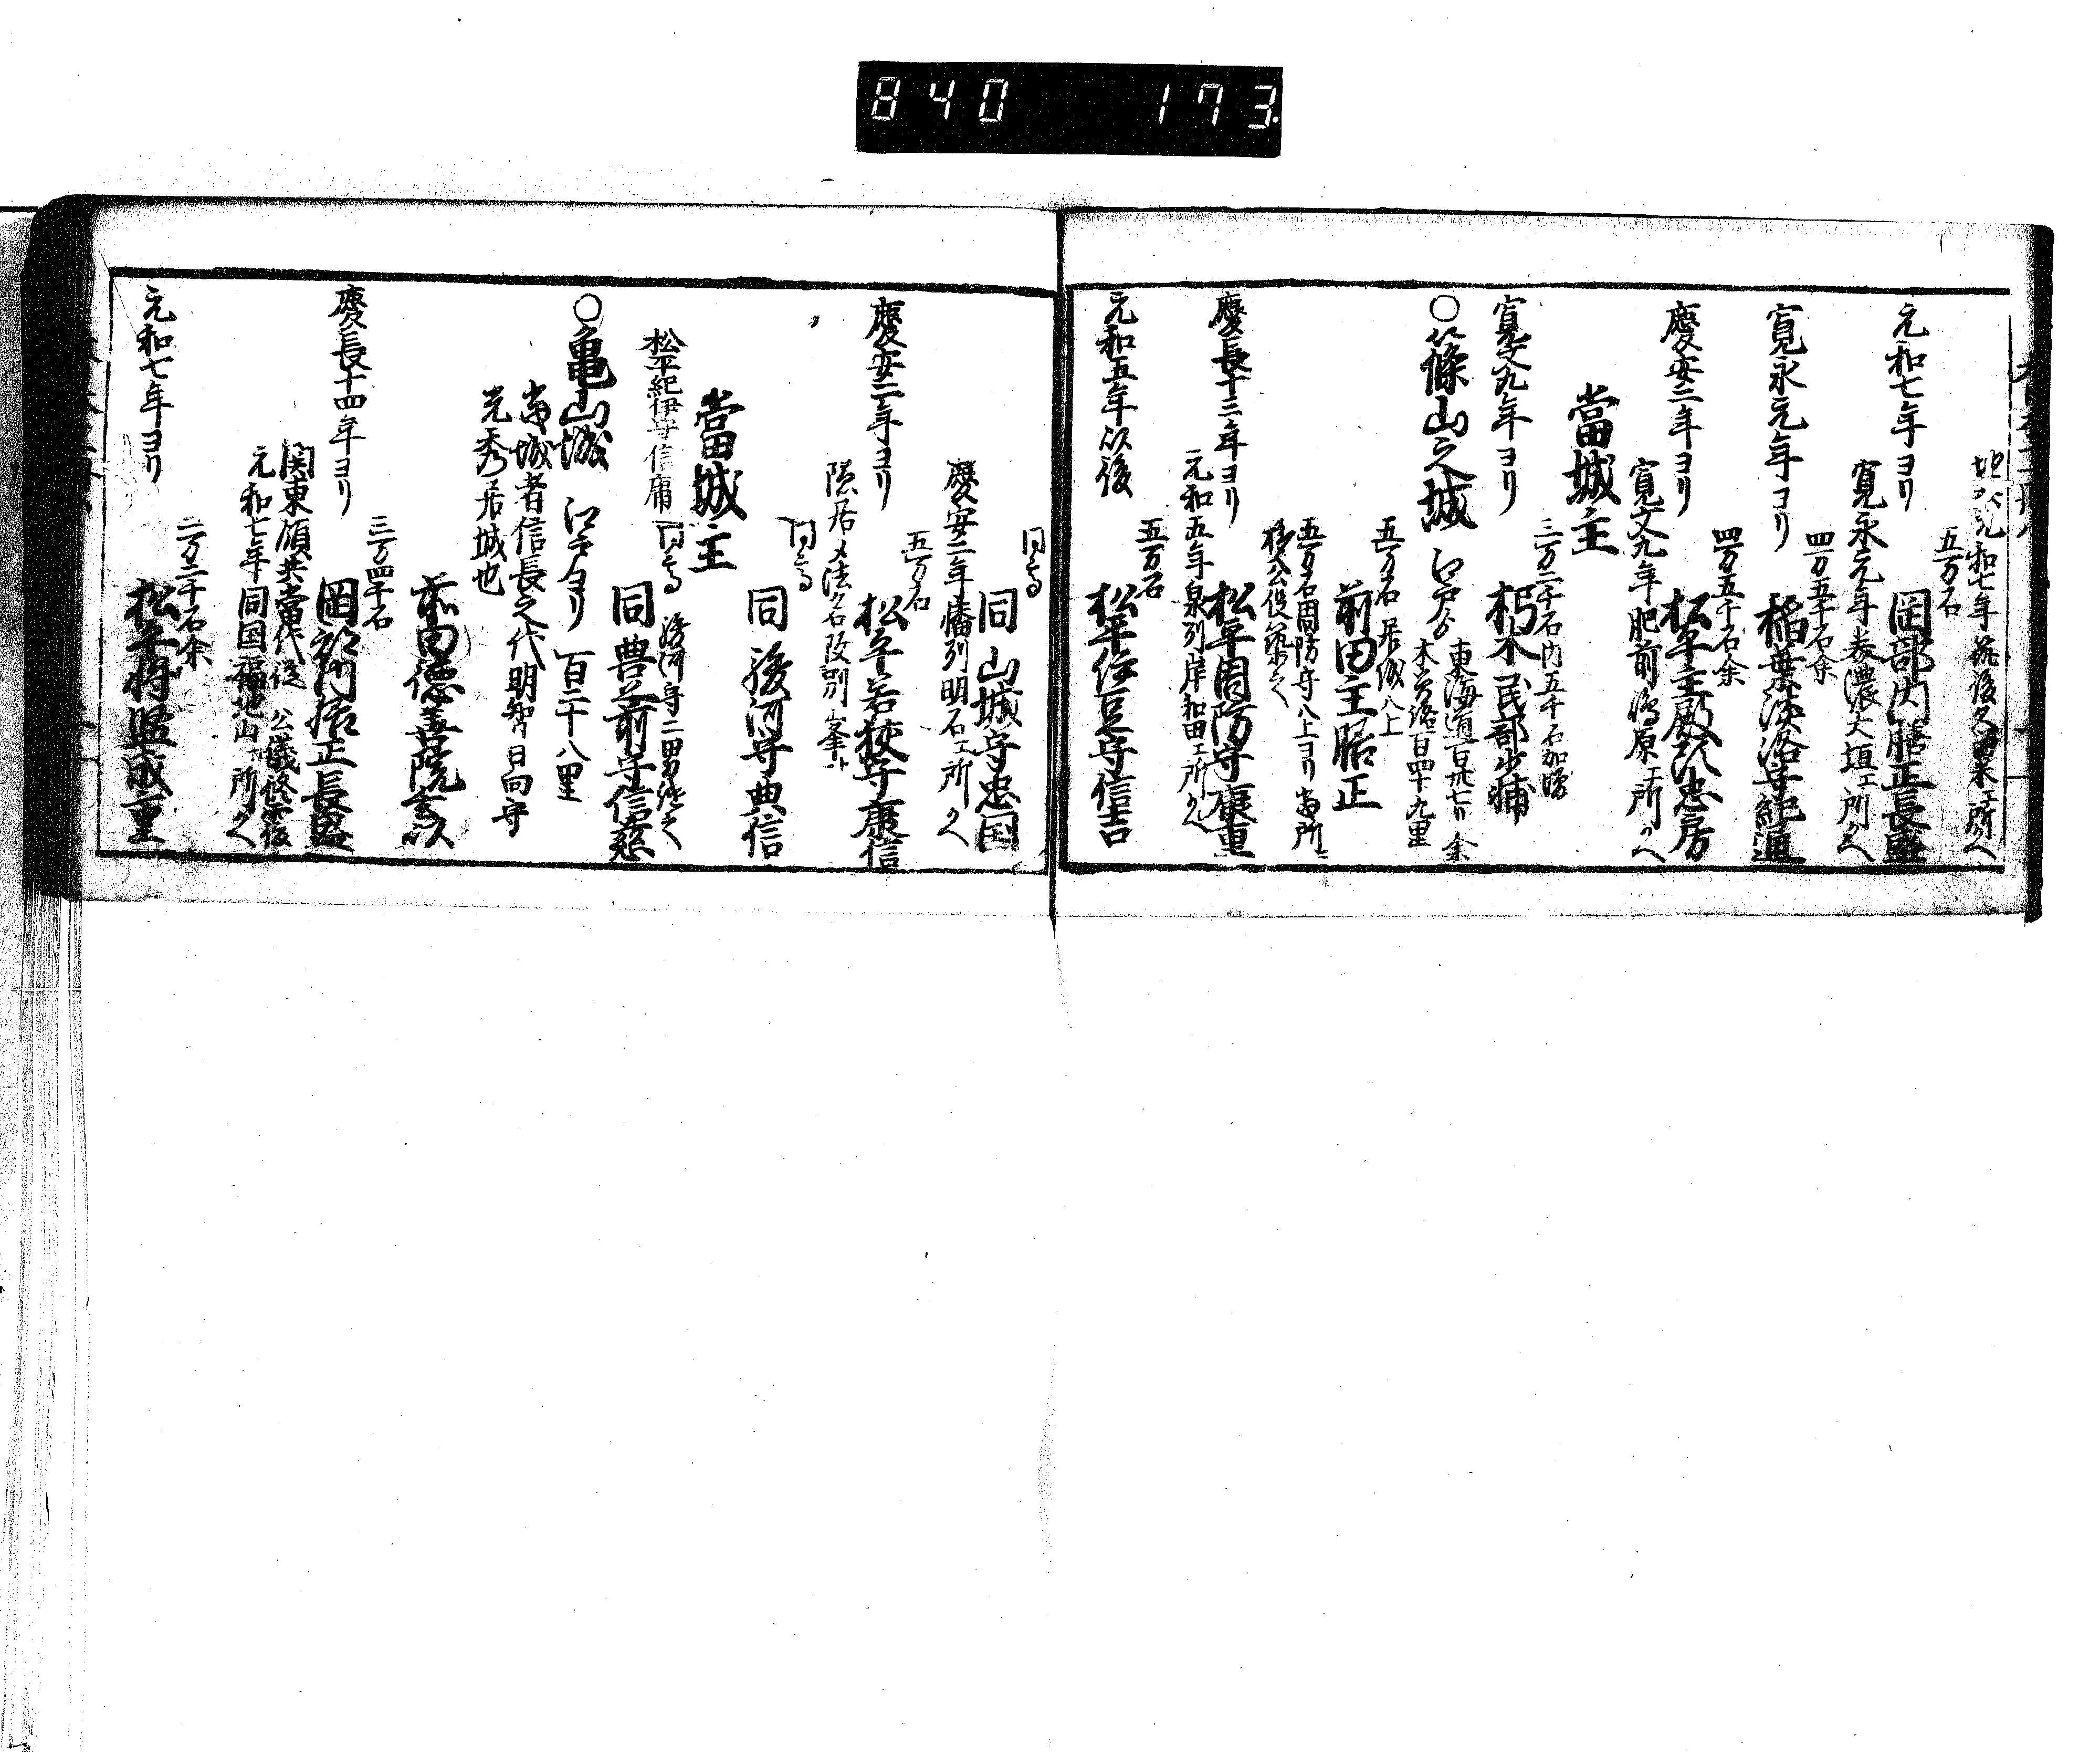 840 173
元和七年筑後久留米エ所
五万石
元和七年ヨリ
岡部内膳正長盛
寛永元年美濃大垣エ所
四万五千石余
寛永元年ヨリ
稲葉淡路守紀通
四万五千石余
慶安二年ヨリ
松平主殿頭忠房
寛文九年肥前嶋原エ所
當城主
三万二千石内五千石加増
寛文九年ヨリ
朽木民部少輔
○篠山之城
江戸ヨリ
東海道百卅七リ余
木曽路百四十九里
五万石居城八上
前田主膳正
五万石周防守八上ヨリ當所
移公役築之
慶長十三年ヨリ
松平周防守康重
元和五年泉列岸和田エ所
五万石
元和五年以後
松平伊豆守信吉
同高
同山城守忠国
慶安二年播列明石エ所
五万石
慶安二年ヨリ
松平若狭守康信
隠居メ法名改別峯
同高
同駿河守典信
當城主
松平紀伊守信庸
同高
同豊前守信
○亀山城
江戸ヨリ百二十八里
當城者信長之代明智日向守
光秀居城也
前田徳善院玄以
三万四千石
慶長十四年ヨリ
岡部内膳正長盛
関東領共當代従公儀修
元和七年同国福地山エ所
二万二千石余
元和七年ヨリ
松平将監成重